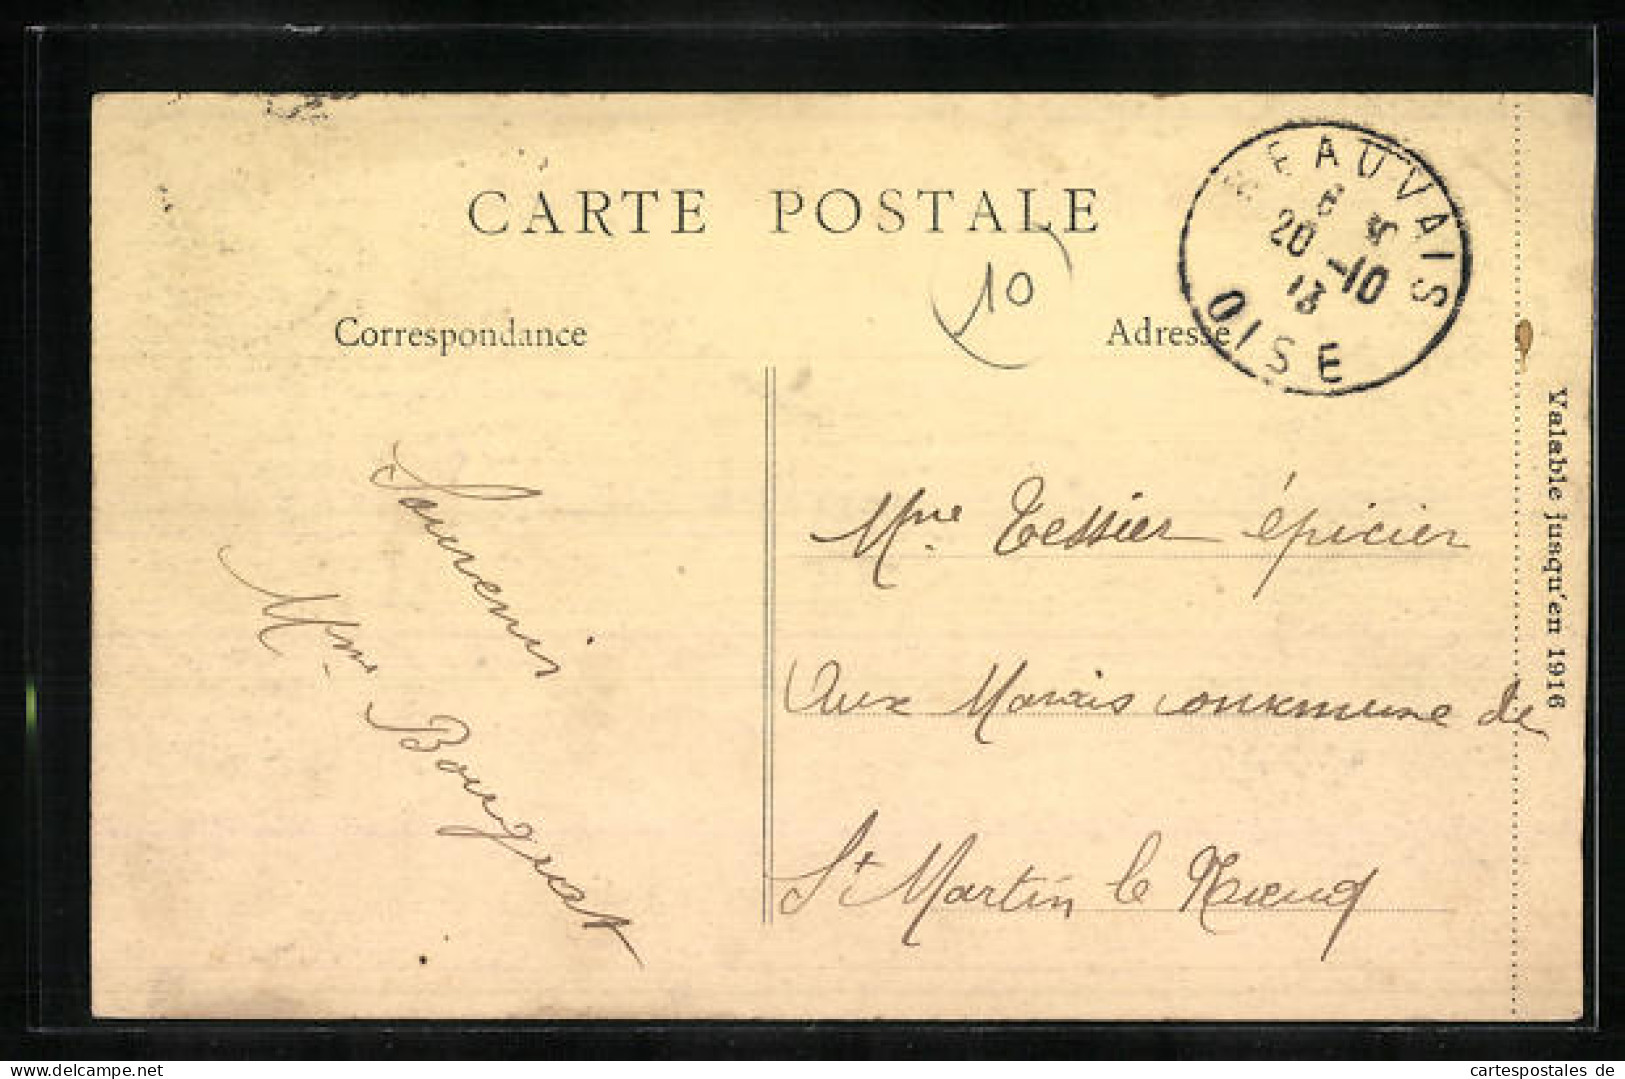 CARTE POSTALE
Correspondance
Adresse
10
BEAUVAIS
20-10
13
OISE
Souvenir
Mme Bourguet
Mme Tessier épicier
Aux Marais commune de
St Martin le Nœud
Valable jusqu'en 1916
delcampe.net
cartespostales de